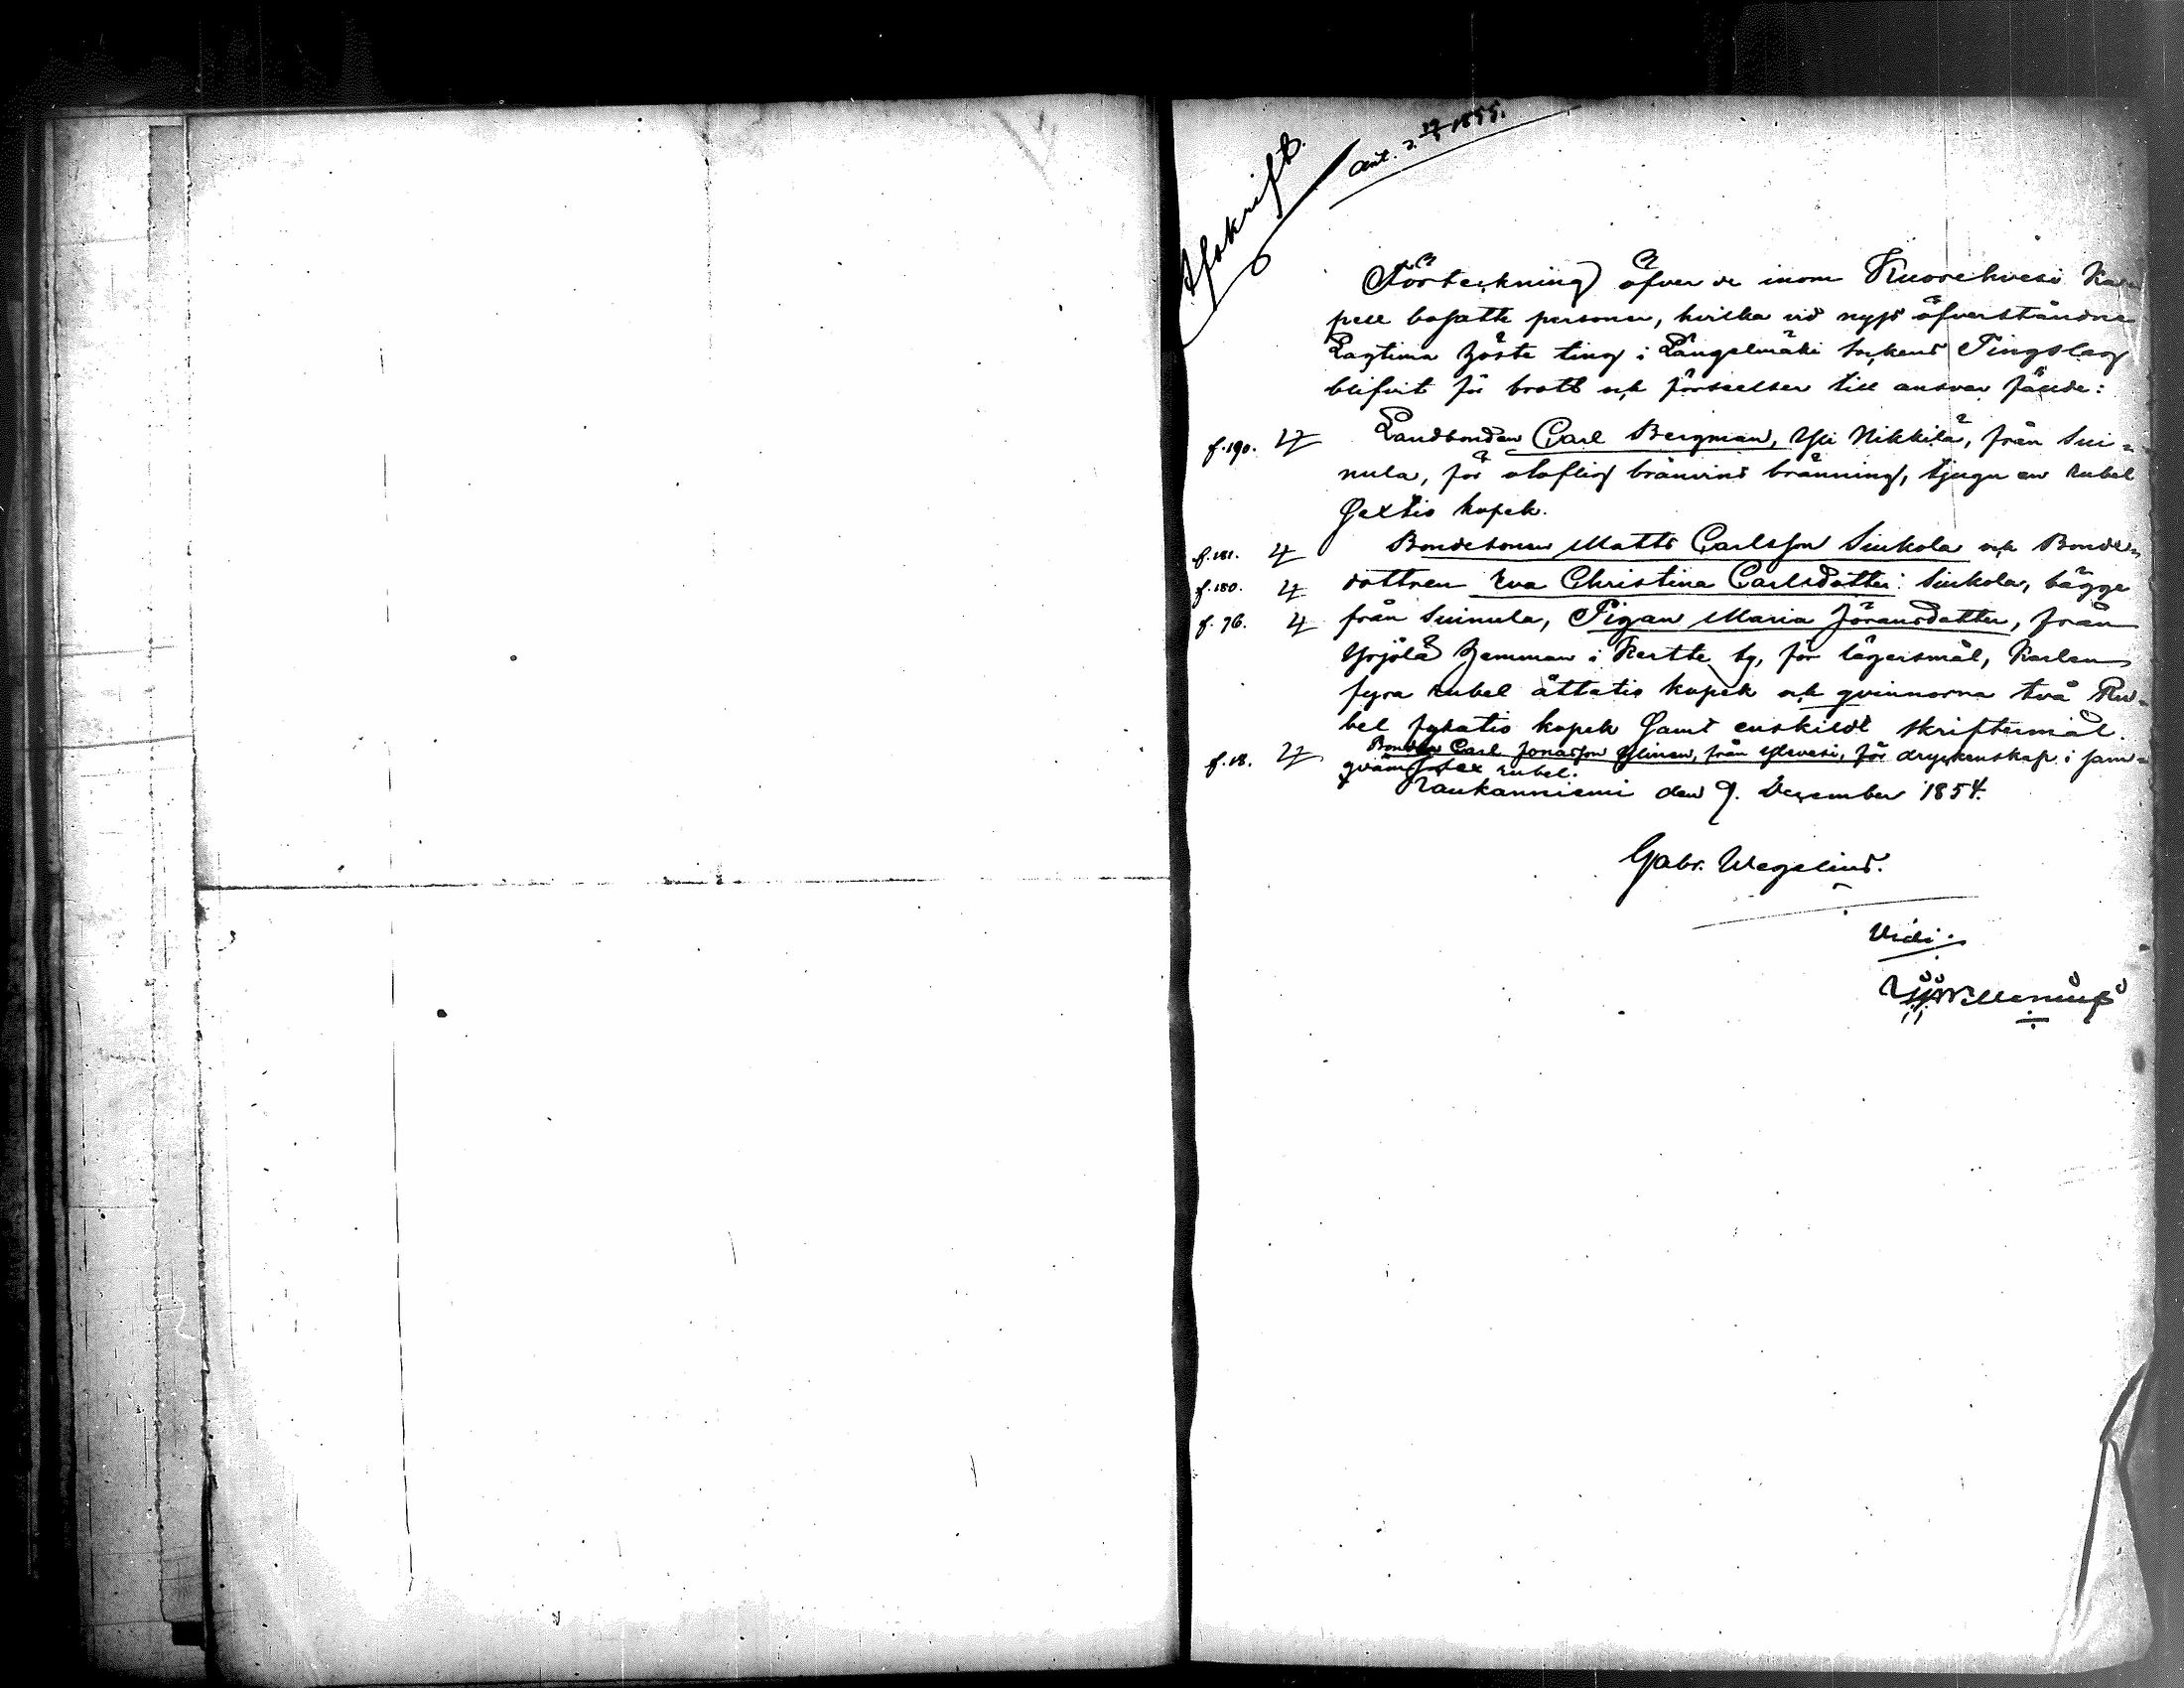 Afskrift.
Ant. 1855.
Förteckning öfver de inom Kuorehvesi Ka-
pell bosatte personer, hvilka vid nyss öfverståndne
Lagtima höste ting i Längelmäki Sockens Tingslag
blifvit för brott och förseelser till answar fälde:
f. 190. Landbonden Carl Bergman, Yli Nikkilä, från Sui-
nula, för oloflig bränvins bränning, tjugu en rubel
sextio kopek.
f. 181. Bondesonen Matts Carlsson Siukola och Bonde-
f. 180. dottren Eva Christina Carlsdotter Siukola, bägge
f. 76. från Suinula, Pigan Maria Jöransdotter, från
Yrjölä hemman i Kertte by, för lägersmål, Karlen
fyra rubel åttatio kopek och qvinnorna två Ru-
bel fyratio kopek samt enskildt skriftermål.
f. 18. Bonden Carl Jonasson Ylinen, från Ylevesi, för dryckenskap i sam-
qväm sex rubel.
Haukanniemi den 9. December 1854.
Gabr. Wegelius.
Vidi.